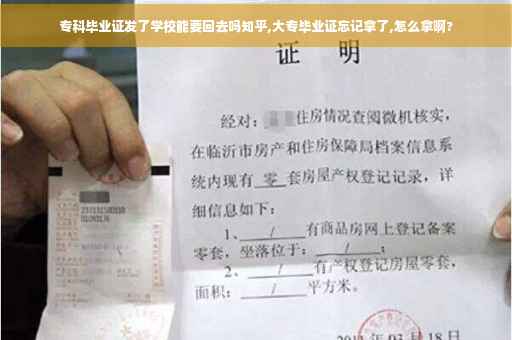 专科毕业证发了学校能要回去吗知乎,大专毕业证忘记拿了,怎么拿啊?
证 明
经对: 住房情况查阅微机核实,
在临沂市房产和住房保障局档案信息系
统内现有 零 套房屋产权登记记录,详
细信息如下:
1、 / 有商品房网上登记备案
零套,坐落位于: / ;
2、 / 有产权登记房屋零套,
面积: / 平方米。
03月18日